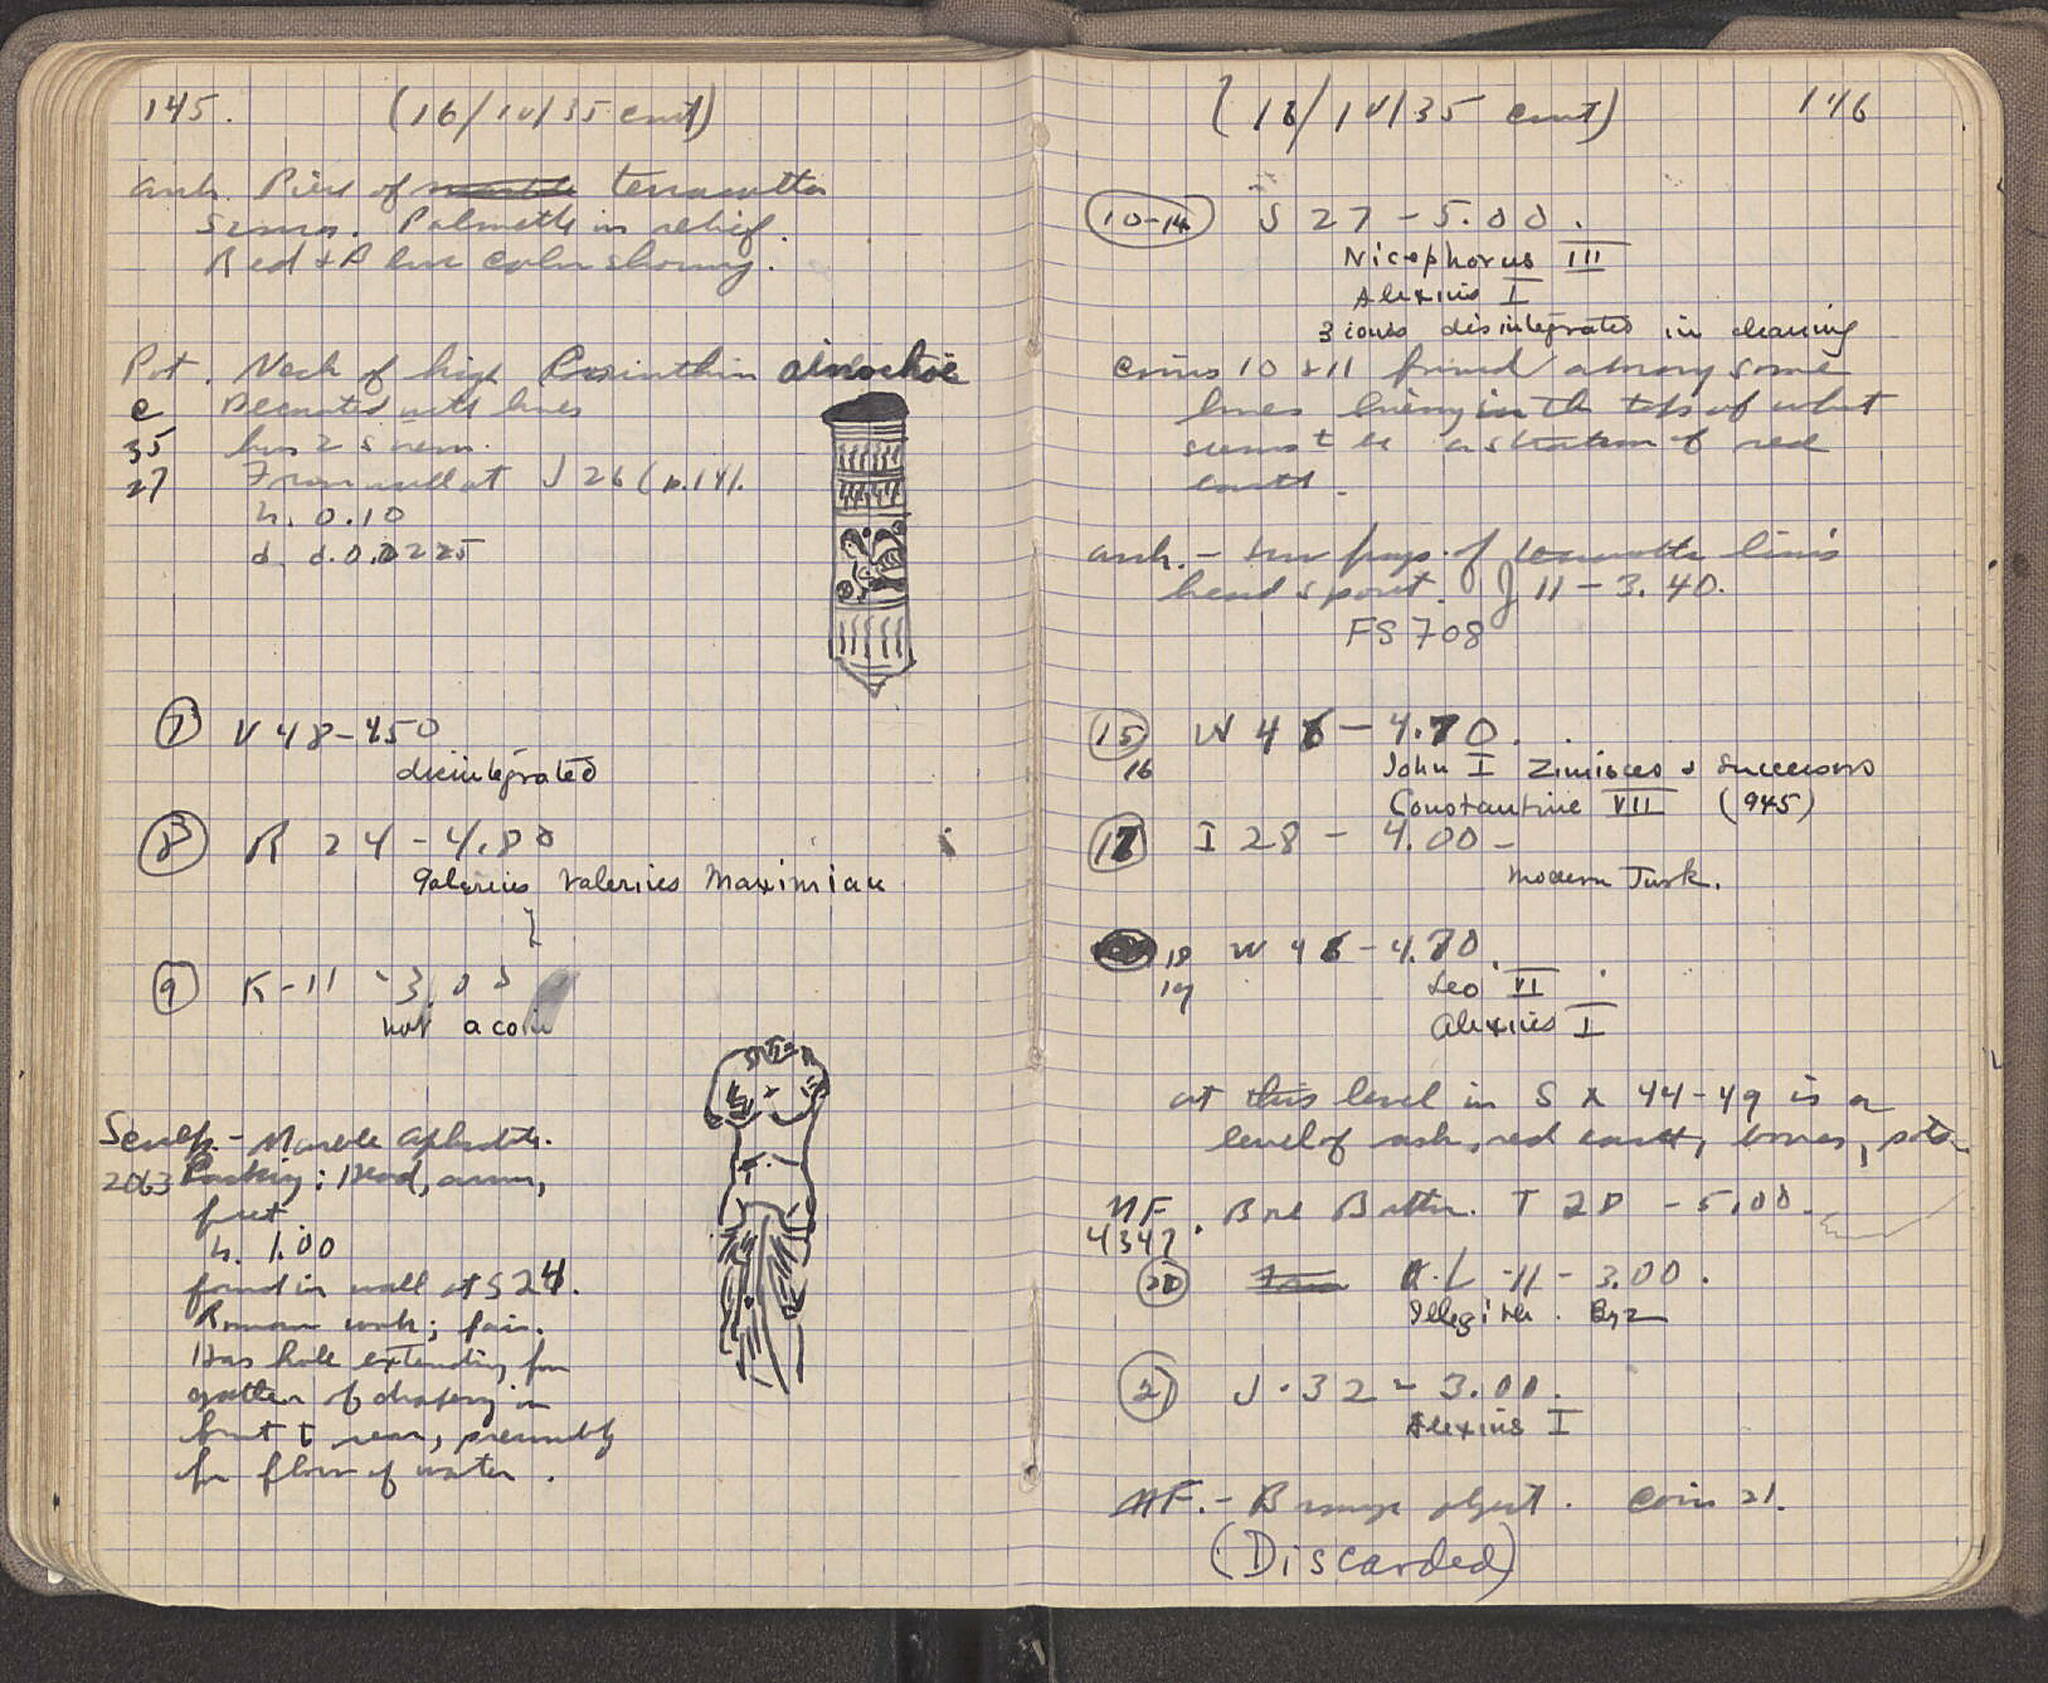 145. (16/IV/35 cont)
arch. Piece of marble terracotta
sima. Palmette in relief.
Red & Blue color showing.
Pot. Neck of high Corinthian oinochoe
C Decorated with lines
35 has 2 sirens.
27 From well at J 26 (p.141.
h. 0.10
d. d. 0.0225
7 V 48 - 4.50
disintegrated
8 R 24 - 4.80
Galerius Valerius Maximian
9 K-11 - 3.00
not a coin
Sculp. - Marble Aphrodite.
2063 Lacking: Head, arms,
feet
h. 1.00
found in wall at S 24.
Roman work; fair.
Has hole extending from
gather of drapery in
front to rear, presumably
for flow of water.
(16/IV/35 cont) 146
10-14 J 27 - 5.00.
Nicephorus III
Alexius I
3 coins disintegrated in cleaning
Coins 10 & 11 found among some
bones lying in the top of what
seems to be a stratum of red
earth.
arch. - two frags. of terracotta lion's
head spout. J 11 - 3.40.
FS 708
15 W 46 - 4.70.
16 John I Zimisces & Successors
Constantine VII (945)
17 I 28 - 4.00 -
Modern Turk.
18 W 46 - 4.70.
19 Leo VI
Alexius I
at this level in S X 44-49 is a
level of ash, red earth, bones, pots
MF. Bone Button. T 28 - 5.00.
4347
20 K.L - 11 - 3.00.
Illegible. Byz
21 J - 32 - 3.00.
Alexius I
MF. - Bronze object. Coin 21.
(Discarded)